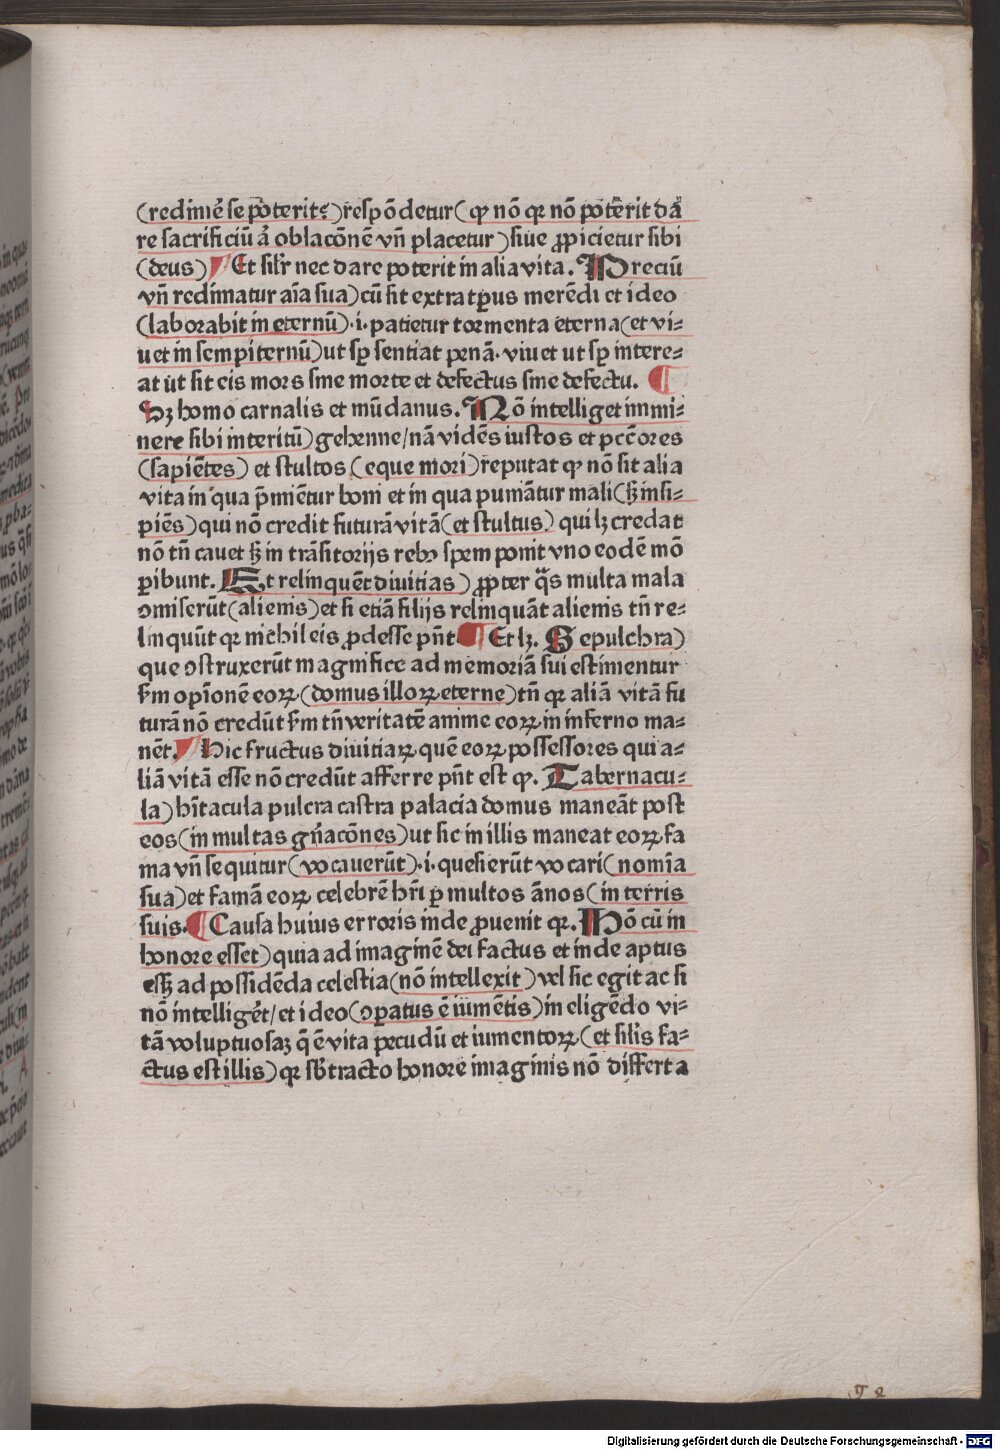 (redimēe se poterit?) respōdetur (qꝫ nō qꝛ nō poterit dā
re sacrificiū ā oblacōnē vn̄ placetur) siue ꝓpicietur sibi
(deus) Et silr̄ nec dare poterit in alia vita. Preciū
vn̄ redimatur aīa sua) cū sit extra tp̄us merēdi et ideo
(laborabit in eternū) .i. patietur tormenta eterna (et vi⸗
uet in sempiternū) ut sp̄ sentiat penā. viuet ut sp̄ intere⸗
at ut sit eis mors sine morte et defectus sine defectu. ¶
Hꝫ homo carnalis et mūdanus. Nō intelliget immi⸗
nere sibi interitū) gehenne/nā vidēs iustos et pccōres
(sapiētes) et stultos (eque mori) reputat qꝫ nō sit alia
vita in qua p̄miētur boni et in qua puniātur mali (sꝫ insi⸗
piēs) qui nō credit futurā vitā (et stultus) qui lꝫ credat
nō tn̄ cauet sꝫ in trāsitorijs rebꝯ spem ponit vno eodē mō
ꝑibunt. Et relinquēt diuitias) ꝓpter q̄s multa mala
ꝯmiserūt (alienis) et si etiā filijs relinquāt alienis tn̄ re⸗
linquūt qꝛ nichil eis ꝓdesse pn̄t ¶ Et lꝫ. Sepulchra)
que ꝯstruxerūt magnifice ad memoriā sui estimentur
s̄m opīonē eoꝝ (domus illoꝝ eterne) tn̄ qꝛ aliā vitā fu
turā nō credūt s̄m tn̄ veritatē anime eoꝝ in inferno ma⸗
nēt. Hic fructus diuitiaꝝ quē eoꝝ possessores qui a⸗
liā vitā esse nō credūt afferre pn̄t est qꝫ. Tabernacu⸗
la) hītacula pulcra castra palacia domus maneāt post
eos (in multas gn̄acōnes) ut sic in illis maneat eoꝝ fa
ma vn̄ sequitur (vocauerūt) .i. quesierūt vocari (nomīa
sua) et famā eoꝝ celebrē hr̄i ꝑ multos ānos (in terris
suis. ¶ Causa huius erroris inde ꝓuenit qꝛ. Hō cū in
honore esset) quia ad imaginē dei factus et inde aptus
essꝫ ad possidēda celestia (nō intellexit) vel sic egit ac si
nō intelligēt/et ideo (ꝯparatus ē iumētis) in eligēdo vi⸗
tā voluptuosaꝫ q̄ ē vita pecudū et iumentoꝝ (et silis fa⸗
ctus est illis) qꝛ sb̄tracto honore imaginis nō differt a
Digitalisierung gefördert durch die Deutsche Forschungsgemeinschaft - DFG